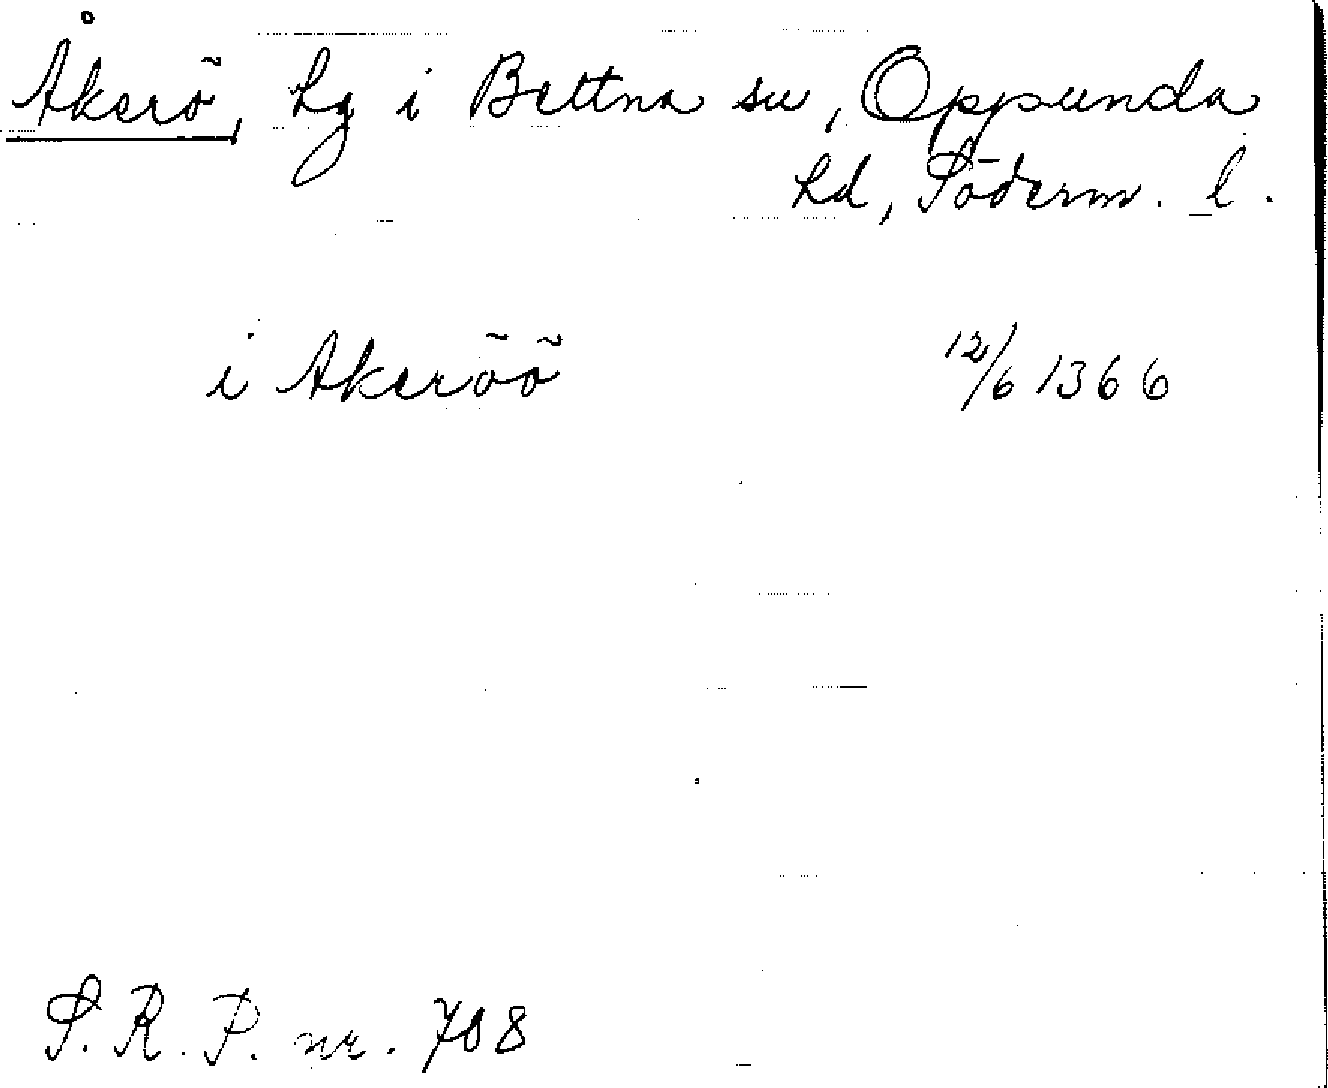 Åkerö, hg i Bettna sn, Oppunda
hd, Söderm. l.
i Akeröö 12/6 1366
S. R. P. nr. 708